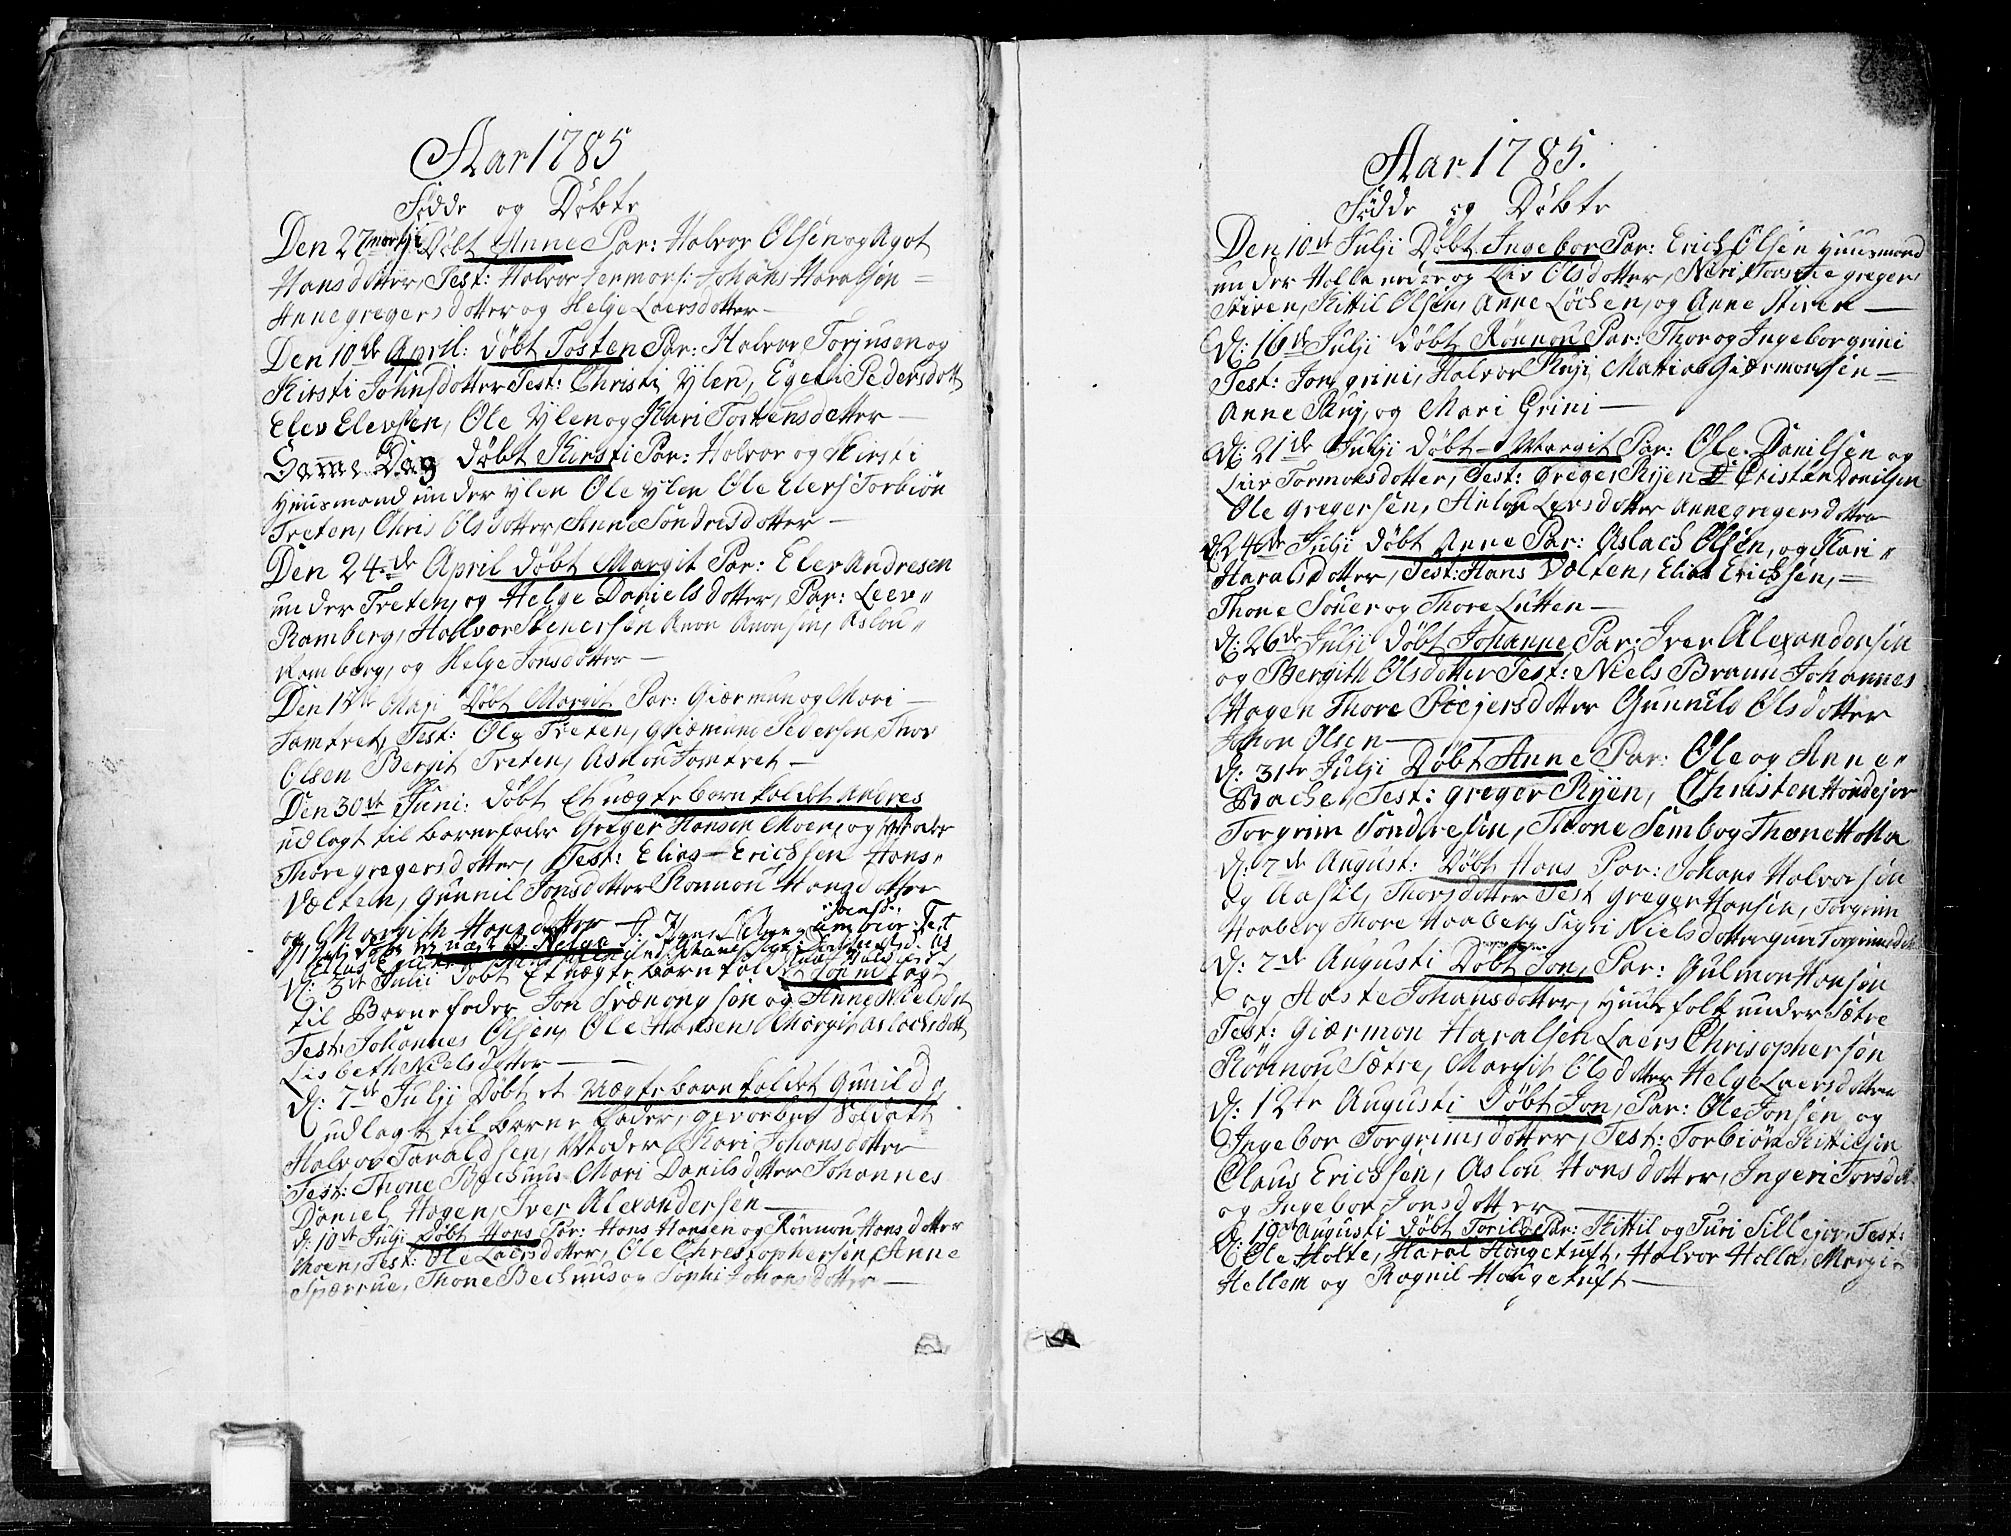 Aar 1785
Fødde og Døbte
Den 27 martji Døbt Anne Par: Halvor Olsen og Agot
Hansdotter, Test: Halvor Johans Haralsøn
Anne gregersdotter og Helge Laersdotter
Den 10de April: døbt Tosten Par: Halvor Torjusen og
Kirsti Johnsdotter Test: Christi Ylen, Egeli Pedersdott
Elev Elevsen, Ole Ylen og Kari Tostensdotter
Same Dag døbt Kirsti Par: Halvor og Kirsti
Huusmand under Ylen Ole Ylen Ole Elers Torbiøn
Treten, Chris Olsdotter, Anne Sondresdotter
Den 24de April døbt Margit Par: Eler Andresen
under Treten, og Helge Danielsdotter, Par: Leev
Ramberg, Hallvor Stenersøn Anon Anonsen, Aslou
Ramberg, og Helge Jonsdotter
Den Maji Døbt Margit Par: Giærmun og Mari
Jamtret, Test: Ole Treten, Giermund Pedersen, Thor
Olsen Bergit Treten, Aslou Jamtret
Den 30te Juni: døbt Et uægte barn kaldet Andres
udlagt til barnefader Greger Hansen Moen, og Moder
Thore gregersdotter, Test: Elias Erichsen Hans
Vælten, Gunnil Jonsdotter Ronnou Hansdotter
og Margith Hansdotter
D: 3de Julii døbt Et uægte barn kald
til Barnefader Jon Trænongsøn og Anne Nielsdot
Test: Johannes Olsen, Ole Hansen, Margit Aslachsdott
Lisbeth Nielsdotter
D: 7de Julji Døbt et uægte barn kaldet Gunild
udlagt til barne fader, gevorben Soldatt
Halvor Taraldsen, Moder Kari Johansdotter
Test: Thone Bechuus Mari Danilsdotter Johannes
Daniel Hagen, Iver Alexandersen
D: 10de Julji Døbt Hans Par: Hans Hansen og Rønnou Hansdotter
Moen, Test: Ole Laersdotter, Ole Christophersen, Anne
Spærrue, Thone Bechuus og Sophi Johansdotter
Aar 1785.
Fødde og Døbte
Den 10de Julji Døbt Ingebor Par: Erich Olsen Huusmand
under Holla nedre og Liv Olsdotter, Neri Tors greger
Stiren, Kittil Olsen, Anne Løchen, og Anne Stiren
D: 16de Julji døbt Rønnou Par: Thor og Ingebor grini
Test: Jon grini, Halvor Ruji Mattias Giærmonsen
Anne Ruj, og Mari Grini
D: 21de Julji døbt Margit Par: Ole Danilsen og
Liv Tormonsdotter, Test: Greger Ryen Cristen Danilsen
Ole Gregersen, Aslou Leersdotter Anne gregersdotter
D: 24de Julji døbt Anne Par: Aslach Olsen, og Kari
Haralsdotter, Test: Hans Vælten, Elias Erichsen,
Thone Souer og Thore Lutten
D: 26de Julji døbt Johanne Par: Iver Alexandersen
og Bergith Olsdotter Test: Niels Braun Johannes
Hagen Thore Piejersdotter Gunnild Olsdotter
Johan Olsen
D: 31te Julji Døbt Anne Par: Ole og Anne
Bache, Test: greger Ryen, Christen Hondejor
Torgrim Søndresen, Thone Semb og Thone Holla
D: 7de August: Døbt Hans Par: Johans Halvorsøn
og Aasil, Thorsdotter Test Greger Hansen, Torgrim
Haaberg Thore Haaberg Sigri Nielsdotter
D: 7de Augusti Døbt Jon, Par: Gulmon Hansen
og Aaste Johansdotter, Huusfolk under Sætre
Test: Giærmon Haralsen Laers Chrisophersøn
Rønnou Sætre, Margit Olsdotter Helge Laersdotter
D: 12te Augusti Døbt Jon, Par: Ole Jonsen, og
Ingebor Torgrimsdotter, Test: Torbiøn Kittilsen
Claus Erichsen, Aslou Hansdotter, Ingeri Torsdott
og Ingebor Jonsdotter
D: 19de Augusti døbt Torild Par: Kittil og Turi Sillejor, Test:
Ole Holte, Haral Haugetuft, Halvor Holla, Margi
Hellem og Rognil Haugetuft